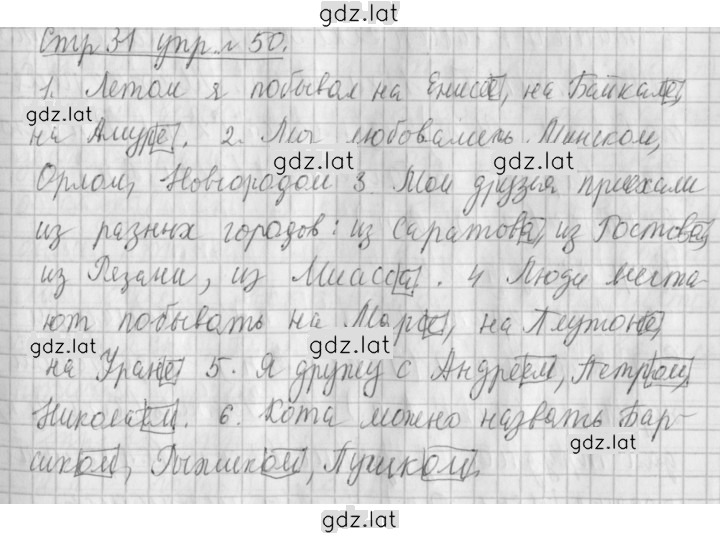 gdz.lat
Стр 31 упр.№ 50.
1. Летом я побывал на Енисее, на Байкале,
gdz.lat
на Амуре. 2. Мы любовались Минском,
gdz.lat gdz.lat
Орлом, Новгородом 3 Мои друзья приехали
из разных городов: из Саратова, из Ростова,
gdz.lat
из Рязани, из Миасса. 4 Люди мечта-
gdz.lat
ют побывать на Марсе, на Плутоне,
gdz.lat gdz.lat
на Уране 5. Я дружу с Андреем, Петром,
Николаем. 6. Кота можно назвать Бар-
gdz.lat
сиком, Рыжиком, Пушком.
gdz.lat
gdz.lat